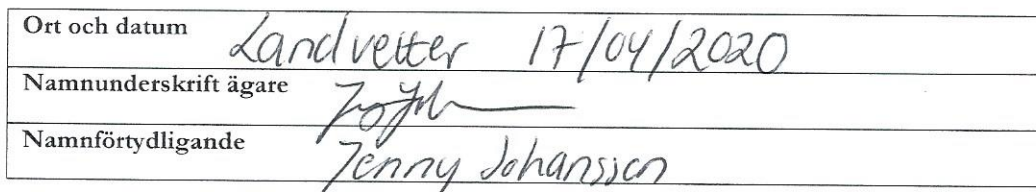 Ort och datum Landvetter 17/04/2020
Namnunderskrift ägare
Namnförtydligande Jenny Johansson